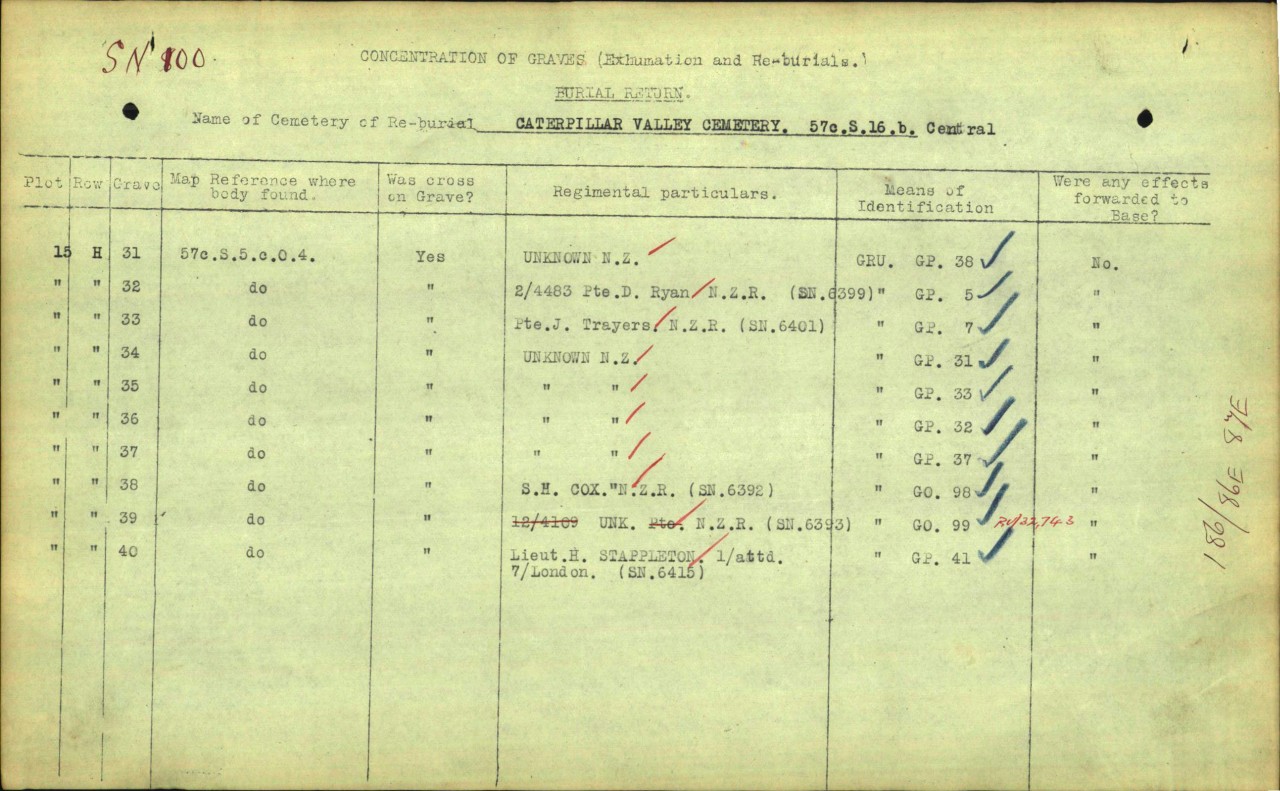 SN 100
CONCENTRATION OF GRAVES (Exhumation and Re-burials.)
BURIAL RETURN.
Name of Cemetery of Re-burial CATERPILLAR VALLEY CEMETERY. 57c.S.16.b. Central
Plot Row Grave Map Reference where body found. Was cross on Grave? Regimental particulars. Means of Identification Were any effects forwarded to Base?
15 H 31 57c.S.5.c.0.4. Yes UNKNOWN N.Z. GRU. GP. 38 No.
" " 32 do " 2/4483 Pte.D. Ryan N.Z.R. (SN.6399) " GP. 5 "
" " 33 do " Pte.J. Trayers. N.Z.R. (SN.6401) " GP. 7 "
" " 34 do " UNKNOWN N.Z. " GP. 31 "
" " 35 do " " " " GP. 33 "
" " 36 do " " " " GP. 32 "
" " 37 do " " " " GP. 37 "
" " 38 do " S.H. COX."N.Z.R. (SN.6392) " GO. 98 "
" " 39 do " 12/4109 UNK. Pte. N.Z.R. (SN.6393) " GO. 99 "
" " 40 do " Lieut.H. STAPPLETON. 1/attd. " GP. 41 "
7/London. (SN.6415)
186/86E 87E